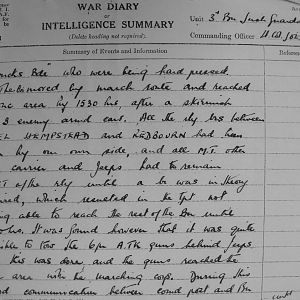 WAR DIARY
or
INTELLIGENCE SUMMARY
(Delete heading not required).
Unit 3rd Bn Irish Guards
Commanding Officer
Summary of Events and Information
Bde" who were being hard pressed.
moved by march route and reached
area by 1530 hrs, after a skirmish
3 enemy armd cars. All the rly brs between
HEMPSTEAD and REDBOURN had been
by our own side, and all M.T. other
carrier and Jeeps had to remain
of the rly until a br was in theory
, which resulted in the Tpt not
being able to reach the rest of the Bn until
hrs. It was found however that it was quite
possible to tow the 6pr A.Tk guns behind Jeeps
this was done and the guns reached the
area with the marching coys. During this
communication between comd post and Bn